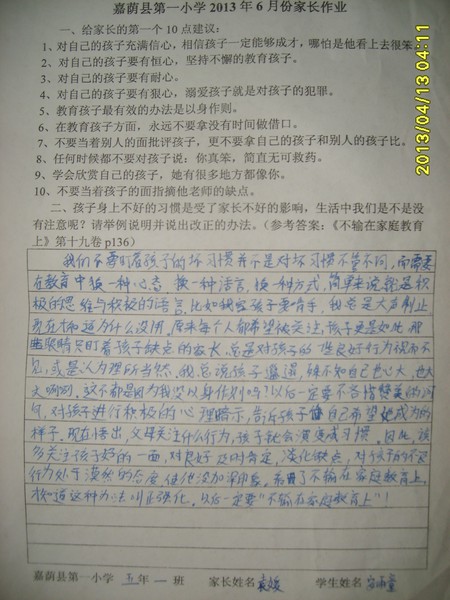 嘉荫县第一小学 2013 年 6 月份家长作业
一、给家长的第一个 10 点建议：
1、对自己的孩子充满信心，相信孩子一定能够成才，哪怕是他看上去很笨
2、对自己的孩子要有恒心，坚持不懈的教育孩子。
3、对自己的孩子要有耐心。
4、对自己的孩子要有狠心，溺爱孩子就是对孩子的犯罪。
5、教育孩子最有效的办法是以身作则。
6、在教育孩子方面，永远不要拿没有时间做借口。
7、不要当着别人的面批评孩子，更不要拿自己的孩子和别人的孩子比。
8、任何时候都不要对孩子说：你真笨，简直无可救药。
9、学会欣赏自己的孩子，她有很多地方都像你。
10、不要当着孩子的面指摘他老师的缺点。
二、孩子身上不好的习惯是受了家长不好的影响，生活中我们是不是没
有注意呢？请举例说明并说出改正的办法。（参考答案：《不输在家庭教育
上》第十九卷 p136）
我们不要盯着孩子的坏习惯并不是对坏习惯不管不问，而需要
在教育中换一种心态，换一种语言，换一种方式，简单来说就是积
极的思维与积极的语言。比如我家孩子爱啃手，我总是大声制止
为什么没用。原来每个人都希望被关注，孩子更是如此。那
些眼睛只盯着孩子缺点的家长，总是对孩子的一些良好行为视而不
见，或是认为理所当然。我总说孩子邋遢，殊不知自己也心大，也大
大咧咧，这不都是因为我没以身作则吗？以后一定要不吝惜赞美的词
句，对孩子进行积极的心理暗示，告诉孩子自己希望她成为的
样子。现在悟出，父母关注什么行为，孩子就会演变成习惯。因此，该
多关注孩子好的一面，对良好及时肯定，淡化缺点，对孩子的不良
行为处于漠然的态度，使他没加深印象。看了不输在家庭教育上，
才知道这种办法叫正强化，以后一定要“不输在家庭教育上”！
嘉荫县第一小学 五年 一 班 家长姓名 袁媛 学生姓名
2013/04/13 04:11